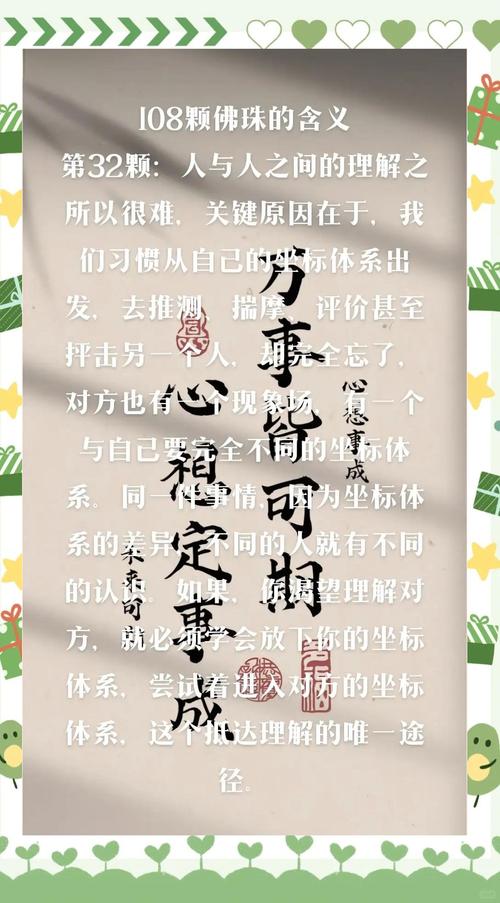 108颗佛珠的含义
第32颗：人与人之间的理解之
所以很难，关键原因在于，我
们习惯从自己的坐标体系出
发，去推测，揣摩，评价甚至
抨击另一个人，却完全忘了，
对方也有一个现象场，有一个
与自己要完全不同的坐标体
系。同一件事情，因为坐标体
系的差异，不同的人就有不同
的认识。如果，你渴望理解对
方，就必须学会放下你的坐标
体系，尝试着进入对方的坐标
体系，这个抵达理解的唯一途
径。
万事皆可期
心想事成
心想定事成